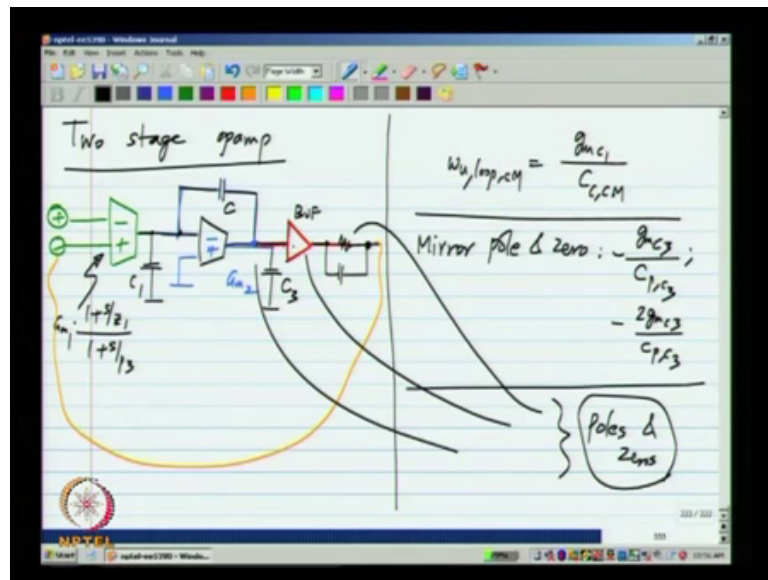 nptel-ee5390 - Windows Journal
File Edit View Insert Actions Tools Help
Page Width
B I
Two stage opamp
C
BUF
+
-
-
+
-
+
C1
Gm2
C3
Gm1 · 1+s/z1
1+s/p3
ωu,loop,CM = gmc1
Cc,CM
Mirror pole & zero : - gmc3 ;
Cp,c3
- 2gmc3
Cp,c3
} Poles &
zeros
NPTEL
333 / 333
333
Start
nptel-ee5390 - Windo...
10:56 AM